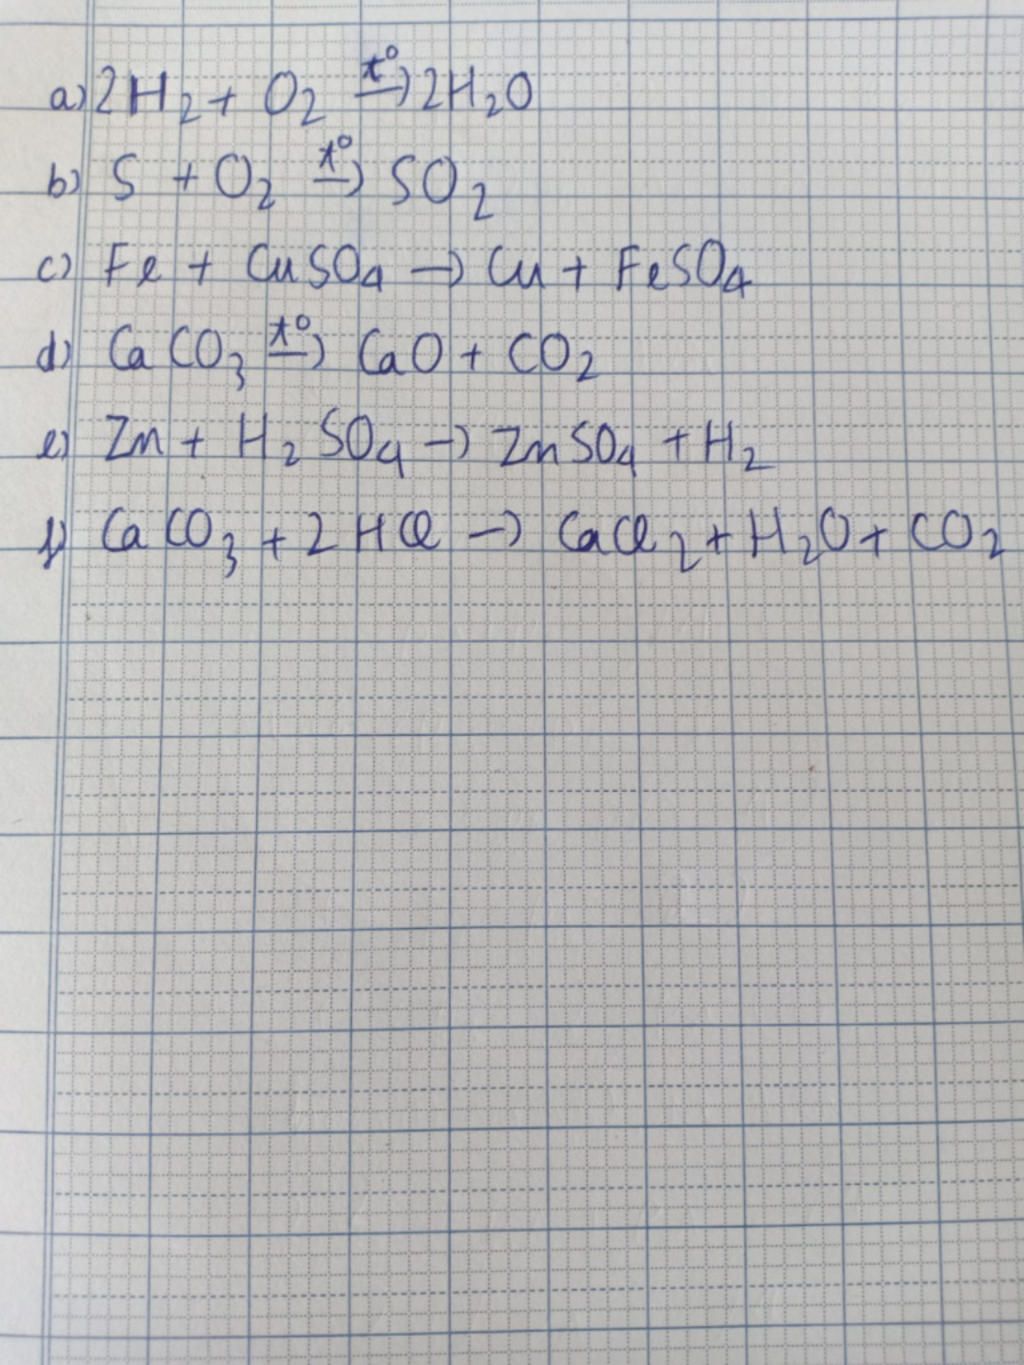 a) 2H₂ + O₂ →(t°) 2H₂O
b) S + O₂ →(t°) SO₂
c) Fe + CuSO₄ → Cu + FeSO₄
d) CaCO₃ →(t°) CaO + CO₂
e) Zn + H₂SO₄ → ZnSO₄ + H₂
f) CaCO₃ + 2HCl → CaCl₂ + H₂O + CO₂